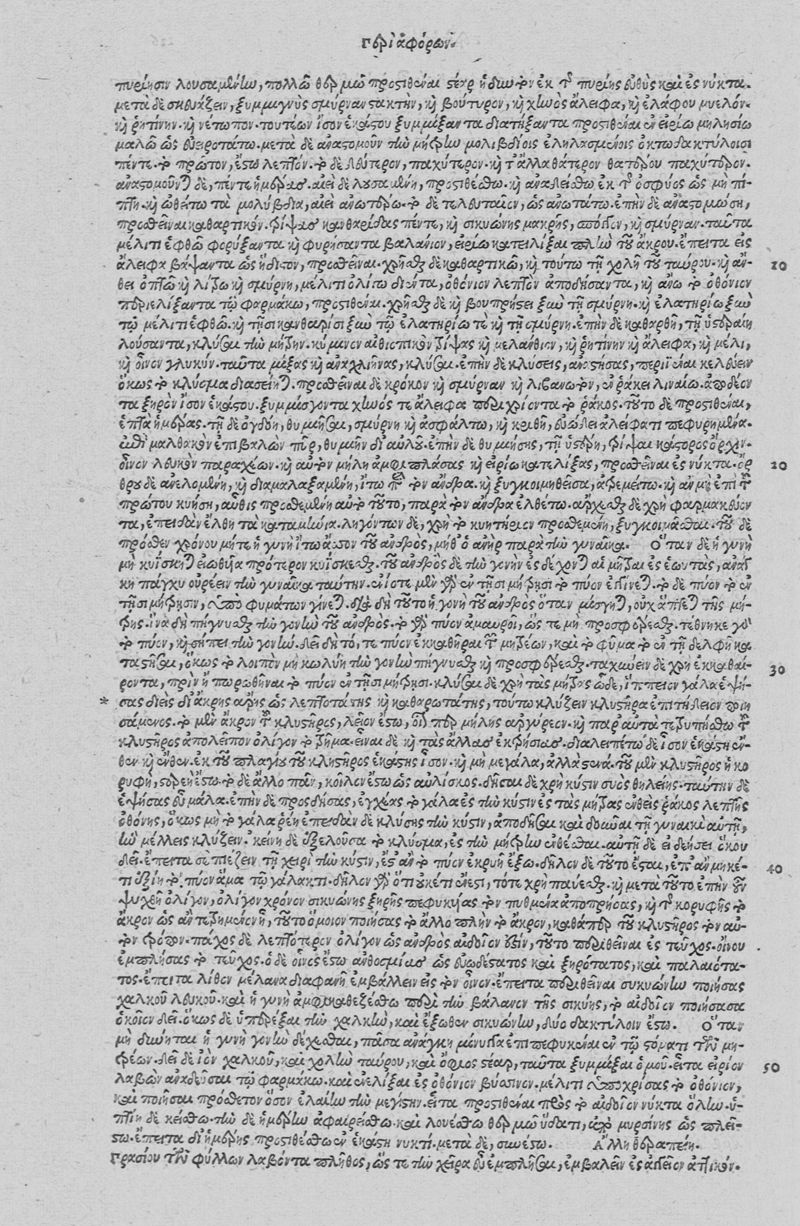 Περὶ ἀφόρων.
πυρίησιν λουσαμένην, πολλῷ θερμῷ προστιθέναι στέαρ ἥδιστον ἐκ τῆς πυρίης εὐθὺς καὶ ἐς νύκτα.
μετὰ δὲ ξυμμιγνὺς σμύρναν στακτὴν, καὶ βούτυρον, καὶ χηνὸς ἄλειφα, καὶ ἐλάφου μυελόν.
καὶ ῥητίνην. καὶ νέτωπον. τουτέων ἴσον ἑκάστου ξυμμίξαντα διατήξαντα προστιθέναι ἐν εἰρίῳ μιλησίῳ
μαλθακῷ ὡς εὐειροτάτῳ. μετὰ δὲ ἀναστομοῦν τὴν μήτρην μολιβδίοις ἐληλασμένοις ὀκτωδακτύλοισι
πέντε. τὸ πρῶτον, ἔστω λεπτόν. τὸ δὲ δεύτερον, παχύτερον. καὶ τἄλλα θάτερον θατέρου παχύτερον.
ἀναστομοῦν δὲ, πέντε ἡμέρας. αἰεὶ δὲ λουσαμένη, προστιθέσθω. καὶ ἀναδείσθω ἐκ τῆς ὀσφύος ὡς μὴ πί-
πτῃ. καὶ ὠθείτω τὰ μολύβδια, αἰεὶ ἀνωτέρω. τὸ δὲ τελευταῖον, ὡς ἀνωτάτω. ἐπὴν δὲ ἀναστομώσῃ,
προσθεῖναι καθαρτικόν. τρίψας κανθαρίδας πέντε, καὶ σικυώνης μακρῆς, καὶ σμύρναν. ταῦτα
μέλιτι ἑφθῷ φορύξαντα καὶ φυρήσαντα βαλάνιον, εἰρίῳ κατειλίξαι τὸ τοῦ ἄκρου. ἔπειτα εἰς
ἄλειφα βάψαντα ὡς ἥδιστον, προσθεῖναι. χρῆσθαι δὲ καθαρτικῷ, καὶ τούτῳ τῇ χολῇ τοῦ ταύρου. καὶ ἄν-
θει καὶ σμύρνῃ, μέλιτι ὀλίγῳ δεύοντα, ὀθόνιον λεπτὸν ἀποδήσαντα, καὶ ἄνω τὸ ὀθόνιον
περιελίξαντα τῷ φαρμάκῳ, προστιθέναι. χρῆσθαι δὲ καὶ βουπρήστει ξὺν τῇ σμύρνῃ. καὶ ἐλατηρίῳ ξὺν
τῷ μέλιτι ἑφθῷ. καὶ τῇσι κανθαρίσι ξὺν τῷ ἐλατηρίῳ τε καὶ τῇ σμύρνῃ. ἐπὴν δὲ καθαρθῇ, τῇ ὑστεραίῃ
λούσαντα, κλύσαι τὴν μήτρην. κύμινον αἰθιοπικὸν τρίψας καὶ μελάνθιον, καὶ ῥητίνην καὶ ἄλειφα, καὶ μέλι,
καὶ οἶνον γλυκύν. ταῦτα μίξας καὶ ἀναχλιήνας, κλύσαι. ἐπὴν δὲ κλύσῃς, ἀναστήσας, περιϊέναι κελεύειν
ὅκως τὸ κλύσμα διασείηται. προσθεῖναι δὲ κρόκον καὶ σμύρναν καὶ λιβανωτὸν, ἐν ῥάκει λινέῳ ἀποδέον-
τα ξηρὸν ἴσον ἑκάστου. ξυμμίσγοντα χηνὸς τε ἄλειφα περιχρίοντα τὸ ῥάκος. τοῦτο δὲ προστιθέναι,
ἑπτὰ ἡμέρας. τῇ δὲ ὀγδόῃ, θυμιῆσαι, σμύρνῃ καὶ ἀσφάλτῳ, καὶ κριθῇ, εὐώδει ἀλείφατι πεφυρημένα.
μαλθακὸν ἐπιβαλὼν πῦρ, θυμιῆν δι' αὐλοῦ. ἐπὴν δὲ θυμιήσῃς, τῇ ὑστέρῃ, τρίψαι κάστορος ὄρχιν.
οἶνον λευκὸν παραχέων. καὶ αὐτὸν μήλῃ ἀμφιπλάσας καὶ εἰρίῳ κατειλίξας, προσθεῖναι ἐς νύκτα. ὄρ-
θρου δὲ ἀνελομένη, καὶ διαμαλαξαμένη, ἴτω πρὸς τὸν ἄνδρα. καὶ ξυγκοιμηθεῖσα, ἀτρεμείτω. καὶ ἂν μὴ ἐπὶ τοῦ
πρώτου κυήσῃ, αὖθις προσθεμένη αὐτὸ τοῦτο, παρὰ τὸν ἄνδρα ἐλθέτω. ἄρχεσθαι δὲ χρὴ φαρμακεύον-
τα, ἐπειδὰν ἔλθῃ τὰ καταμήνια. ληγόντων δὲ, χρὴ τὸ κυητήριον προσθεμένῃ, ξυγκοιμᾶσθαι. τοῦ δὲ
πρόσθεν χρόνου μήτε ἡ γυνὴ ἴτω ἆσσον τοῦ ἀνδρὸς, μήθ' ὁ ἀνὴρ παρὰ τὴν γυναῖκα. Ὅταν δὲ ἡ γυνὴ
μὴ κυΐσκηται εἰωθυῖα πρότερον κυΐσκεσθαι. τοῦ ἀνδρὸς δὲ τὴν γονὴν ἐσδέχονται αἱ μῆτραι ἐς ἑωυτὰς, ἀνάγ-
κη πάγχυ οὐρέειν τὴν γυναῖκα ταύτην. ἐνίοτε μὲν γὰρ ἐν τῇσι μήτρῃσι τὸ πύον ἐγένετο. τὸ δὲ πύον τὸ ἐν
τῇσι μήτρῃσιν, ἀπὸ φυμάτων γίνεται. διὸ δὴ τοῦτο ἡ γονὴ τοῦ ἀνδρὸς ὅταν μίσγηται, οὐχ ἅπτεται τῆς μή-
τρης. ἵνα δὴ πήγνυσθαι τὴν γονὴν τοῦ ἀνδρός. τὸ γὰρ πύον ἀμαυροῖ, ὥς τε μὴ προσφύεσθαι. τέθνηκε γὰρ
τὸ πύον, καὶ σήπει τὴν γονήν. δεῖ δὴ τό, τε πύον ἐκκαθῆραι τῶν μητρέων, καὶ τὸ φῦμα τὸ ἐν τῇ δελφῇ κα-
ταστῆσαι, ὅκως τὸ λοιπὸν μὴ κωλύῃ τὴν γονὴν πήγνυσθαι καὶ προσφύεσθαι. ταχύνειν δὲ χρὴ ἐκκαθαί-
ροντα, πρὶν ἢ πωρωθῆναι τὸ πύον ἐν τῇσι μήτρῃσι. κλύσαι δὲ χρὴ τὰς μήτρας ὧδε, ἵππειον γάλα ἑψή-
* σας διεὶς δι' ἄκρης ὡς λεπτοτάτης καὶ καθαρωτάτης, τούτῳ κλύζειν κλυστῆρα ἐπιτήδειον ποιη-
σάμενος. τὸ μὲν ἄκρον τοῦ κλυστῆρος, λεῖον ἔστω, οἷόν περ μήλης ἀργύρεον. καὶ παρ' αὐτὰ τετρυπήσθω τοῦ
κλυστῆρος ἀπολεῖπον ὀλίγον τὸ τρῆμα. εἶναι δὲ καὶ τὰς ἄλλας ἐκτρήσιας. διαλειπέτω δὲ ἴσον ἑκάστη ἔν-
θεν καὶ ἔνθεν. ἐκ τοῦ πλαγίου τοῦ κλυστῆρος ἑκάστης ἴσον. καὶ μὴ μεγάλα, ἀλλὰ στενά. τοῦ μὲν κλυστῆρος ἡ κο
ρυφὴ, στερεὴ ἔστω. τὸ δὲ ἄλλο πᾶν, κοῖλον ἔστω ὡς αὐλίσκος. δῆσαι δὲ χρὴ κύστιν συὸς θηλείης. ταύτην δὲ
ἑψήσας εὖ μάλα. ἐπὴν δὲ προσδήσας, ἐγχέας τὸ γάλα ἐς τὴν κύστιν ἐς τὰς μήτρας ἐνθεὶς ῥάκος λεπτῆς
ὀθόνης, ὅκως μὴ τὸ γάλα ῥέῃ ἐπειδὰν δὲ κλύσῃς τὴν κύστιν, ἀποδῆσαι καὶ δοῦναι τῇ γυναικὶ αὐτῇ,
ἣν μέλλεις κλύζειν. κείνη δὲ ἐξελοῦσα τὸ κλύσμα, ἐς τὴν μήτρην ἐνθέσθαι. αὐτῇ δὲ εἰδήσει ὅκου
δεῖ. ἔπειτα σὲ πιέζειν τῇ χειρὶ τὴν κύστιν, ἔστ' ἂν τὸ πύον ἐκρυῇ ἔξω. δῆλον δὲ τοῦτο ἔσται, ἐπ' ἂν μηκέ-
τι ἐξίῃ τὸ πύον ἅμα τῷ γάλακτι. δῆλον γὰρ ὅτι οὐκέτι ἄπεισι, τότε χρὴ παύεσθαι. καὶ μετὰ τοῦτο ἐπὴν
ψυχθῇ ὀλίγον, ὀλίγον χρόνον σικυώνης ξηρῆς πεφυκυίας τὸν πυθμένα ἀποπρήσας, καὶ τῆς κορυφῆς τὸ
ἄκρον ὡς ἂν τετμημένον ᾖ, τούτῳ ὅμοιον ποιήσας τὸ ἄλλο πλὴν τὸ ἄκρον, καθάπερ τοῦ κλυστῆρος τὸν αὐ-
τὸν τρόπον. πάχος δὲ λεπτότερον ὀλίγον ὡς ἀνδρὸς αἰδοῖον ἐστὶν, τοῦτο περιθεῖναι ἐς τεῦχος. οἴνου
ἐμπλήσας τὸ τεῦχος. ὁ δὲ οἶνος ἔστω ἀνθοσμίας ὡς εὐωδέστατος καὶ ξηρότατος, καὶ παλαιότα-
τος. ἔπειτα λίθον μέλανα διαφανῆ ἐμβάλλειν εἰς τὸν οἶνον. ἔπειτα περιθεῖναι συκυώνην ποιήσας
χαλκοῦ λευκοῦ. καὶ ἡ γυνὴ ἀμφικαθεζέσθω περὶ τὴν βάλανον τῆς σικύης, τὸ αἰδοῖον ποιήσασα
ὁκοῖον δεῖ. ὅκως δὲ ὑπερέξει τὴν χαλκῆν, καὶ ἔξωθεν σικυώνην, δύο δακτύλοιν ἔστω. Ὅταν
μὴ δύνηται ἡ γυνὴ γονὴν δέχεσθαι, πᾶσα ἀνάγκη μήνιγγα ἐπιπεφυκέναι ἐν τῷ στόματι τῶν μη-
τρέων. δεῖ δὲ ἰὸν χαλκοῦ, καὶ χολὴν ταύρου, καὶ ὄφιος στέαρ, ταῦτα ξυμμίξαι ὁμοῦ. εἶτα εἰρίον
λαβὼν ἀναδεῦσαι τῷ φαρμάκῳ. καὶ ἐνελίξαι ἐς ὀθόνιον βύσσινον. μέλιτι περιχρίσας τὸ ὀθόνιον,
καὶ ποιῆσαι πρόσθετον ὅσον ἐλαίην τὴν μεγίστην. εἶτα προστιθέναι πρὸς τὸ αἰδοῖον νύκτα ὅλην. ὑ-
πτίη δὲ κείσθω. τὴν δὲ ἡμέρην ἀφαιρείσθω. καὶ λουέσθω θερμῷ ὕδατι, ἀπὸ μυρσίνης ὡς πλεῖ-
στῳ. ἔπειτα δι' ἡμέρης προστιθέσθω ἐν ἑκάστῃ νυκτί. μετὰ δὲ, συνέστω. Ἄλλη θεραπείη.
Πρασίου τῶν φύλλων λαβόντα πλῆθος, ὥς τε τὴν χεῖρα εὖ ἐμπλῆσαι, ἐμβαλεῖν ἐς ἀττικόν.
10
20
30
40
50